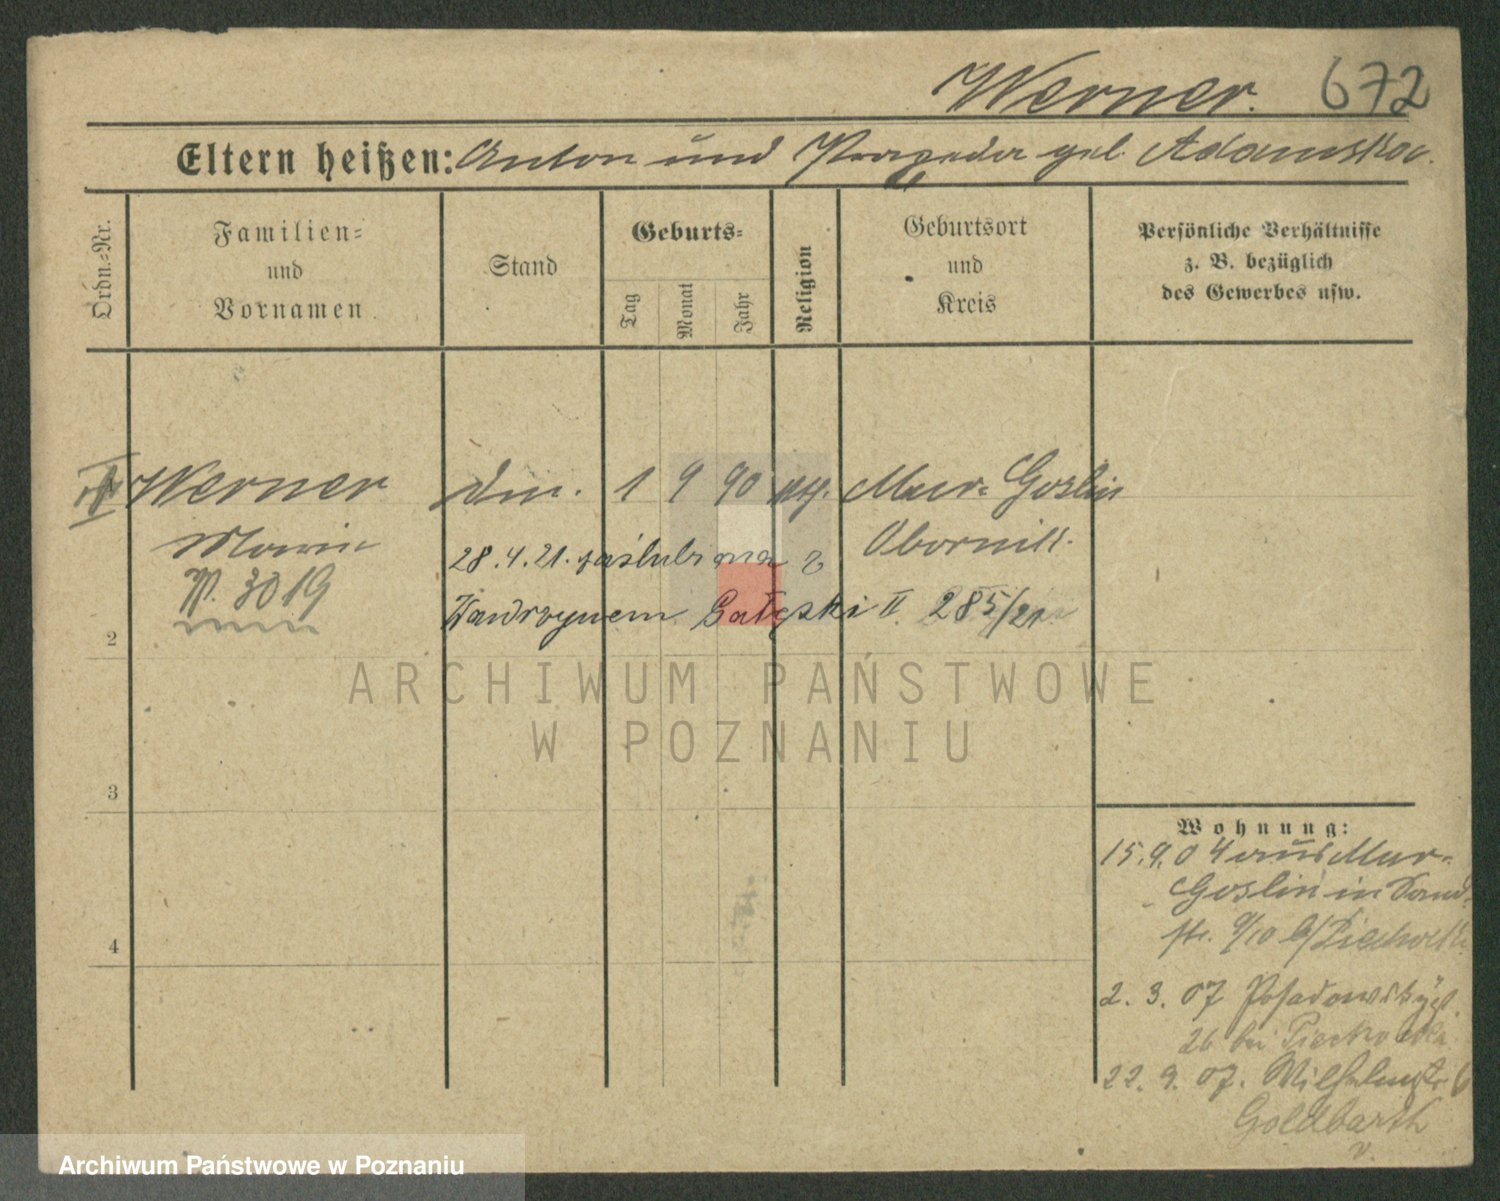 Werner. 672
Eltern heißen: Anton und Praxeda geb. Adamska.
Ordn.-Nr.
Familien-
und
Vornamen
Stand
Geburts-
Tag
Monat
Jahr
Religion
Geburtsort
und
Kreis
Persönliche Verhältnisse
z. B. bezüglich
des Gewerbes usw.
Werner 1 9 90 Mur. Goslin
Obornik.
28.4.21. zaślubiona z
Wawrzynem Gałęski II. 285/21.
3019
2
ARCHIWUM PAŃSTWOWE
W POZNANIU
3
4
Wohnung:
15.9.04 aus Mur.
Goslin in Sand-
str. 9/10
2. 3. 07 Posadowsky
26 bei Piechocki
22. 9. 07. Wilhelmstr. 6
Goldbarth
Archiwum Państwowe w Poznaniu